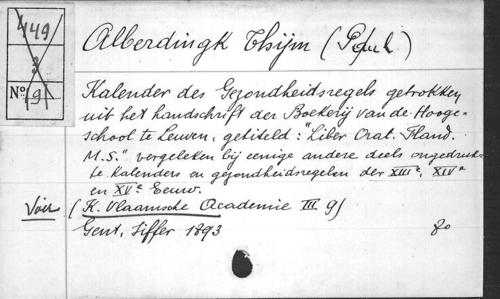 449/
3
No 9
Alberdingk Thijm (P. Paul)
Kalender des Gezondheidsregels getrokken
uit het handschrift der Boekerij van de Hooge-
school te Leuven, getiteld: "Liber Orat. Fland.
M.S." vergeleken bij eenige andere deels ongedruk-
te Kalenders en gezondheidsregelen der XIIIe, XIVe
en XVe Eeuw.
Voir (K. Vlaamsche Academie III 9)
Gent, Siffer 1893 8o